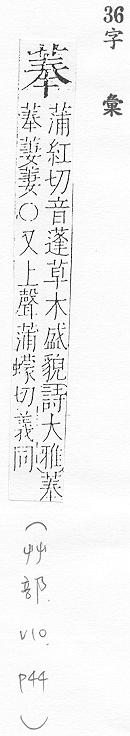 36
字彙
菶
蒲紅切音蓬草木盛貌詩大雅菶
菶萋萋○又上聲蒲蠓切義同
(艸部. V10. P44)